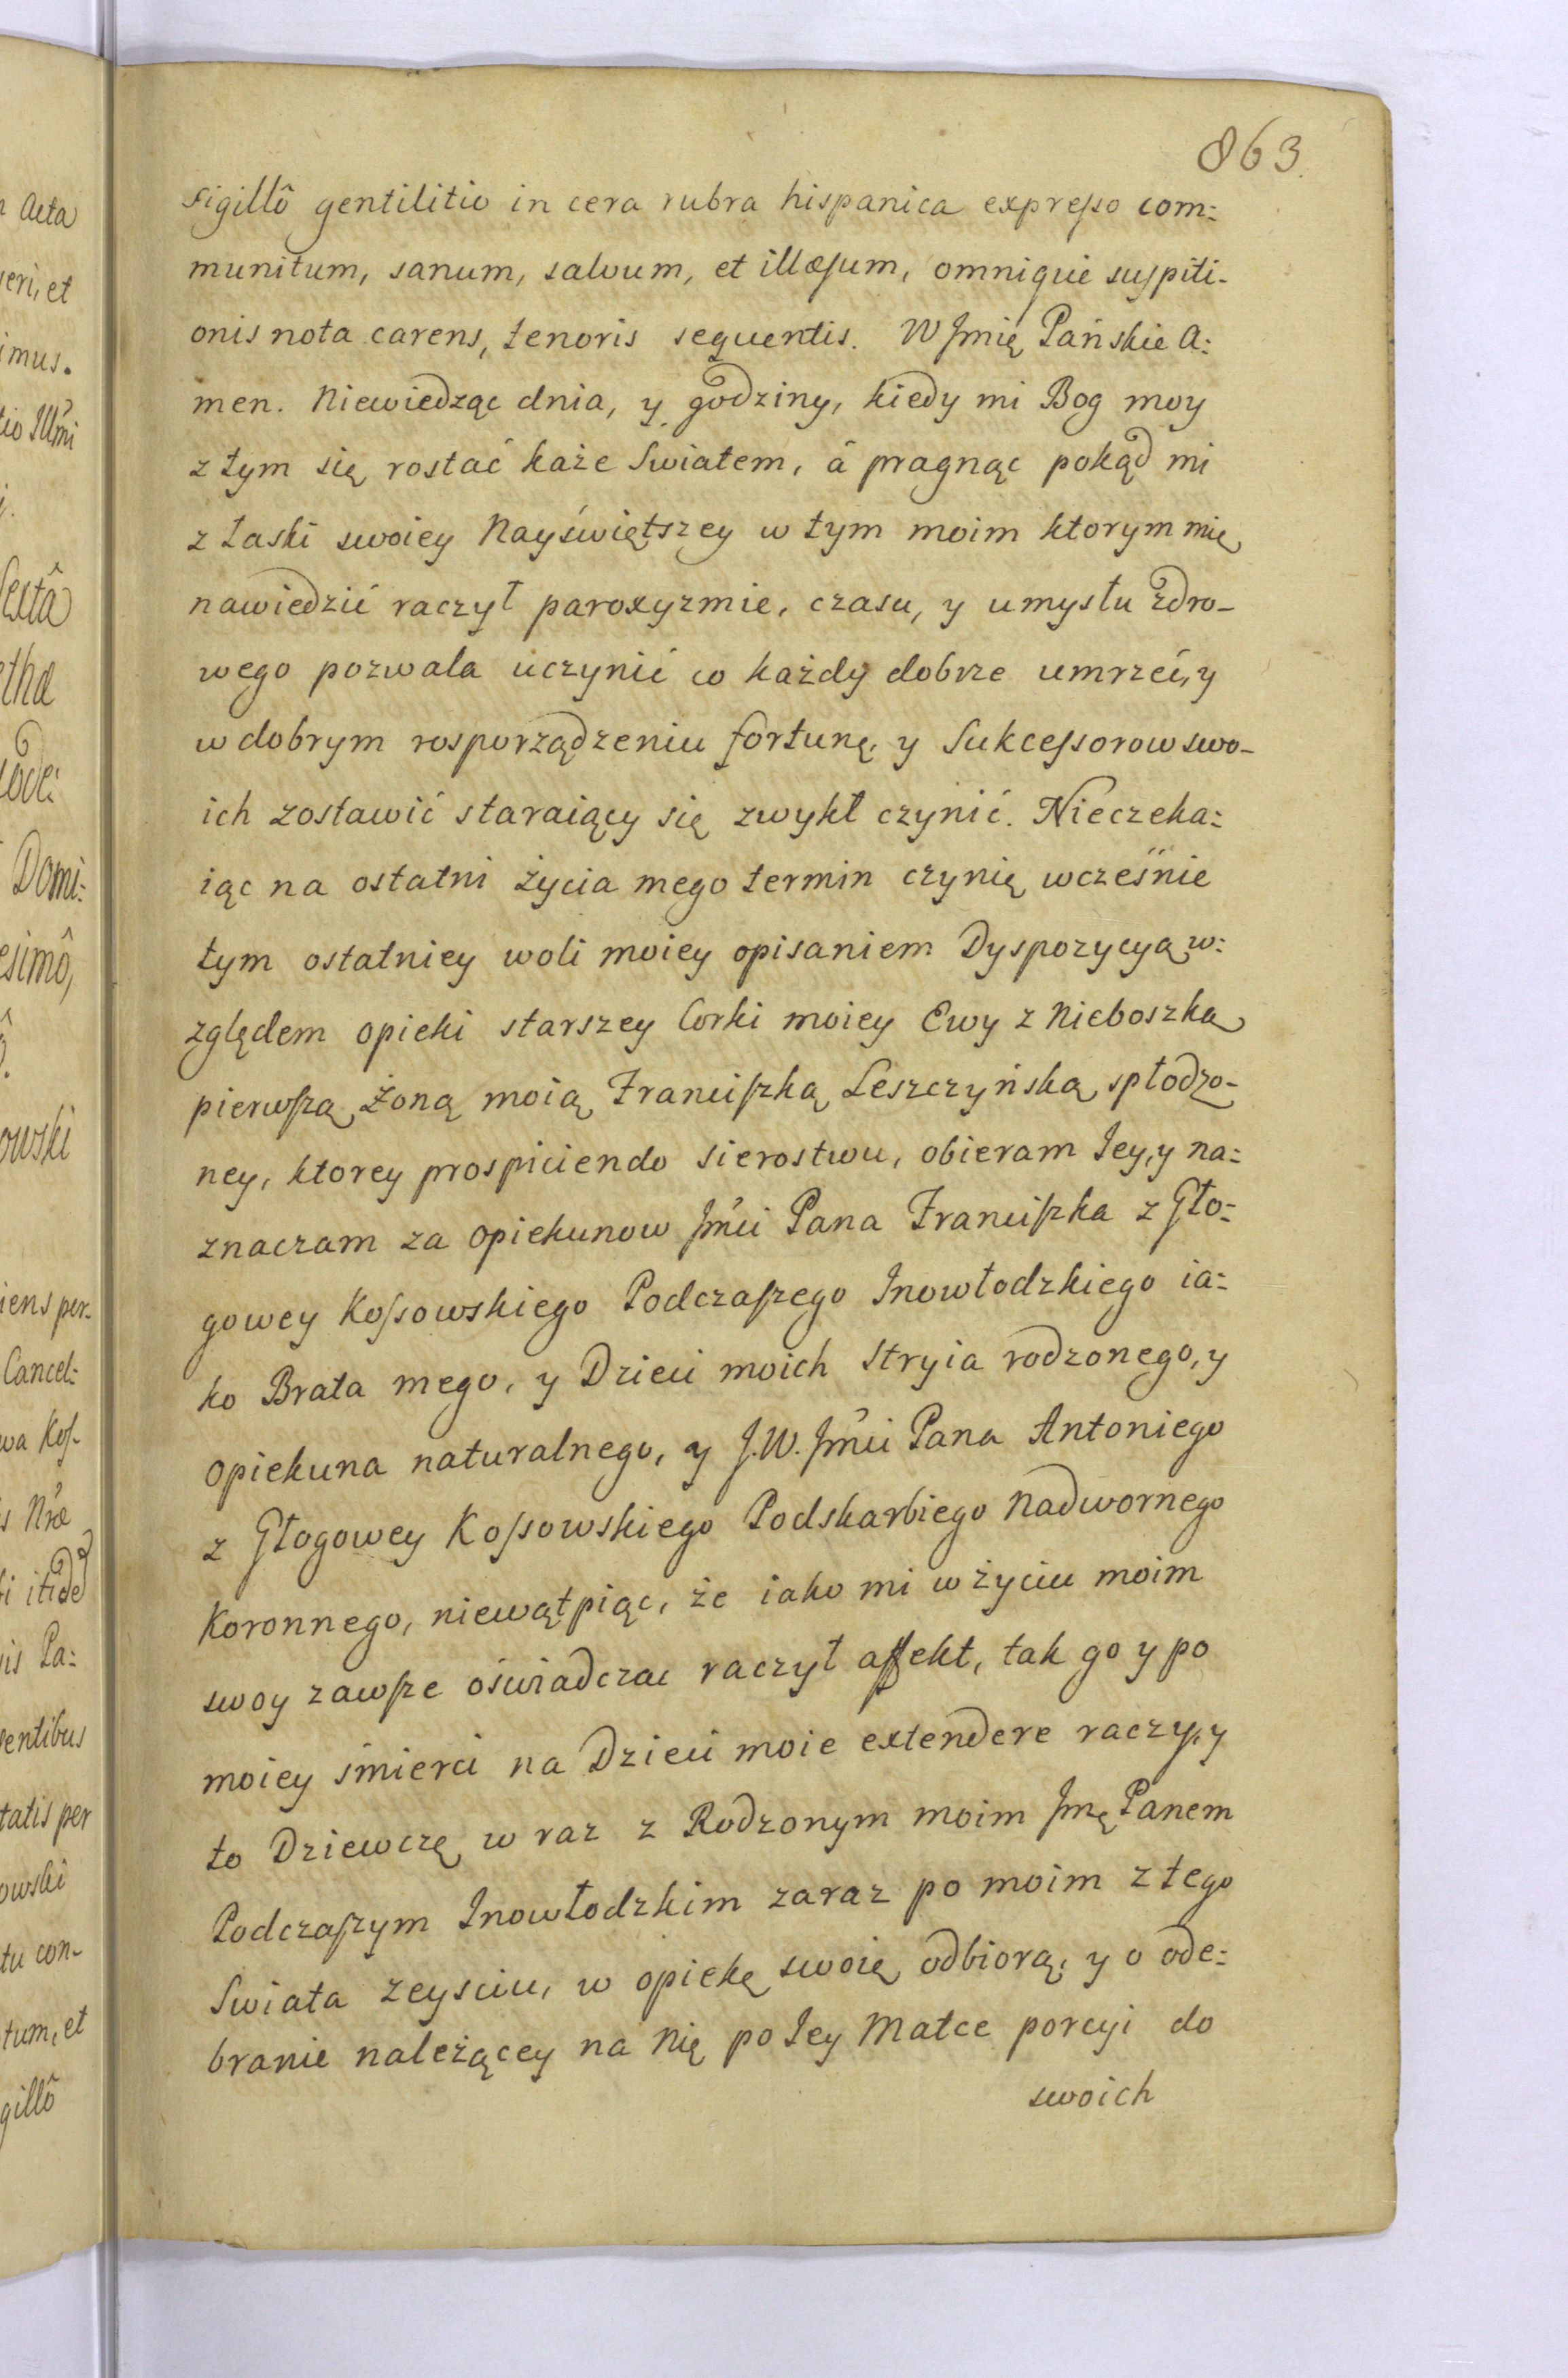 863.
sigillô gentilitio in cera rubra hispanica expresso com:
munitum, sanum, salvum, et illæsum, omnique suspiti-
onis nota carens, tenoris sequentis. W Jmię Pańskie A:
men. Niewiedząc dnia, y godziny, kiedy mi Bog moy
z tym się rostać każe Swiatem, á pragnąc pokąd mi
z łaski swoiey Nayświętszey w tym moim ktorym mię
nawiedzić raczył paroxyzmie, czasu, y umysłu zdro-
wego pozwala uczynić co każdy dobrze umrzeć, y
w dobrym rosporządzeniu fortunę, y Sukcessorow swo-
ich zostawić staraiący się zwykł czynić. Nieczeka:
iąc na ostatni życia mego termin czynię wcześnie
tym ostatniey woli moiey opisaniem Dyspozycyą w:
zględem opieki starszey Corki moiey Ewy z Nieboszką
pierwszą Żoną moią Franciszką Leszczyńską spłodzo-
ney, ktorey prospiciendo sierostwu, obieram Jey, y na:
znaczam za opiekunow Jmći Pana Franciszka z Gło:
gowey Kossowskiego Podczaszego Jnowłodzkiego ia:
ko Brata mego, y Dzieci moich Stryia rodzonego, y
opiekuna naturalnego, y J.W. Jmći Pana Antoniego
z Głogowey Kossowskiego Podskarbiego Nadwornego
Koronnego, niewątpiąc, że iako mi w życiu moim
swoy zawsze oświadczac raczył affekt, tak go y po
moiey śmierci na Dzieci moie extendere raczy, y
to Dziewczę w raz z Rodzonym moim Jmę Panem
Podczaszym Jnowłodzkim zaraz po moim z tego
Swiata zeysciu, w opiekę swoię odbiorą, y o ode:
branie należącey na Nię po Jey Matce porcyi do
swoich